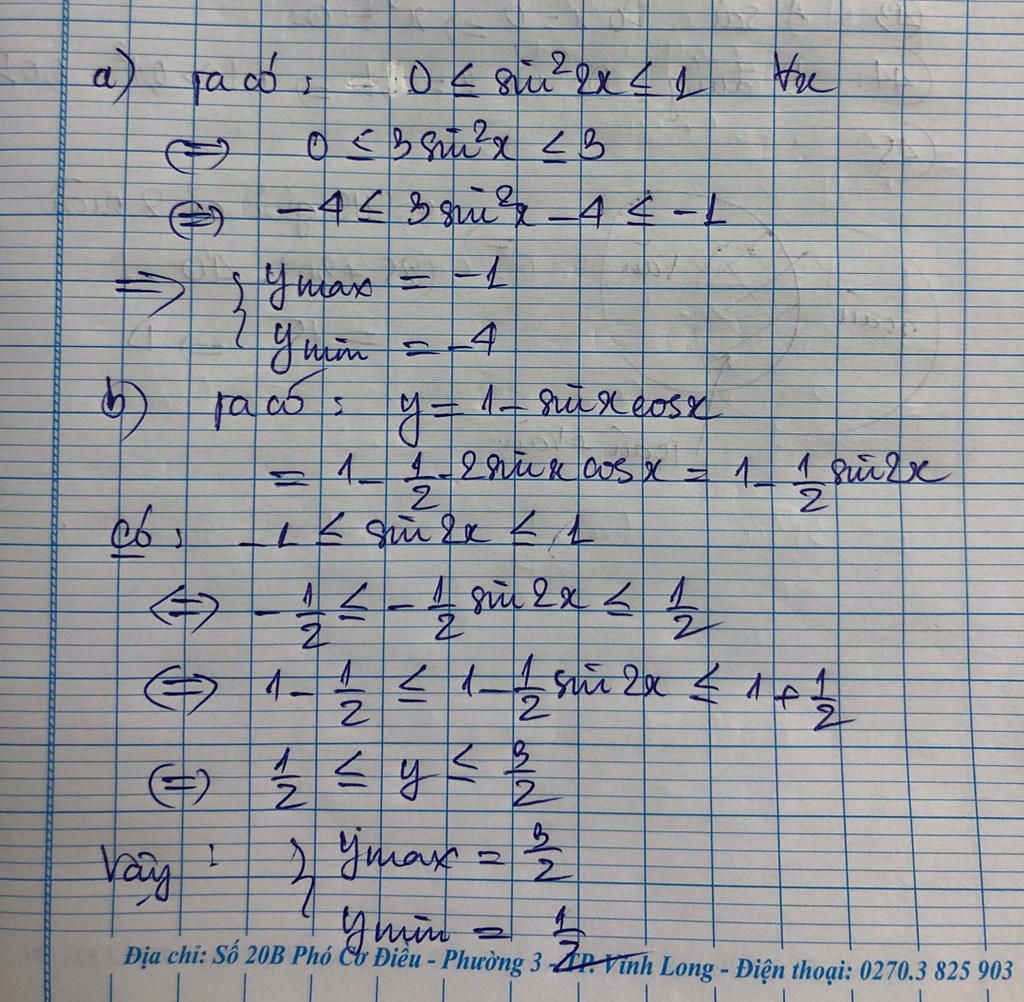 a) Ta có : 0 ≤ sin²2x ≤ 1 ∀x
⇔ 0 ≤ 3sin²x ≤ 3
⇔ -4 ≤ 3sin²x - 4 ≤ -1
⇒ { ymax = -1
ymin = -4
b) Ta có : y = 1 - sinxcosx
= 1 - 1/2 . 2sinxcosx = 1 - 1/2 sin2x
Có : -1 ≤ sin2x ≤ 1
⇔ -1/2 ≤ -1/2 sin2x ≤ 1/2
⇔ 1 - 1/2 ≤ 1 - 1/2 sin2x ≤ 1 + 1/2
⇔ 1/2 ≤ y ≤ 3/2
Vậy : { ymax = 3/2
ymin = 1/2
Địa chỉ: Số 20B Phó Cơ Điều - Phường 3 - TP. Vĩnh Long - Điện thoại: 0270.3 825 903